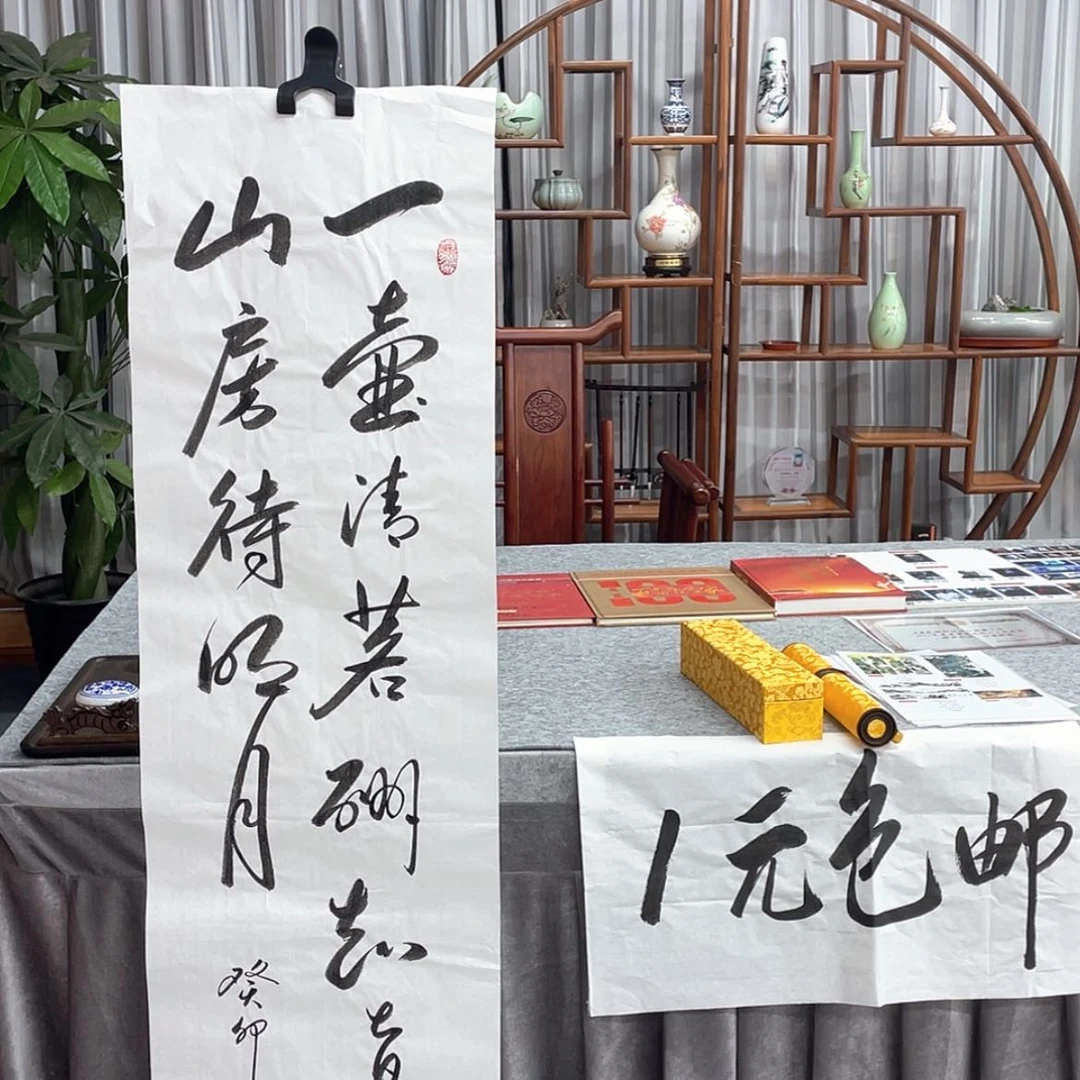 一壺清茗酬知音
山房待明月
癸卯
1元包邮
100